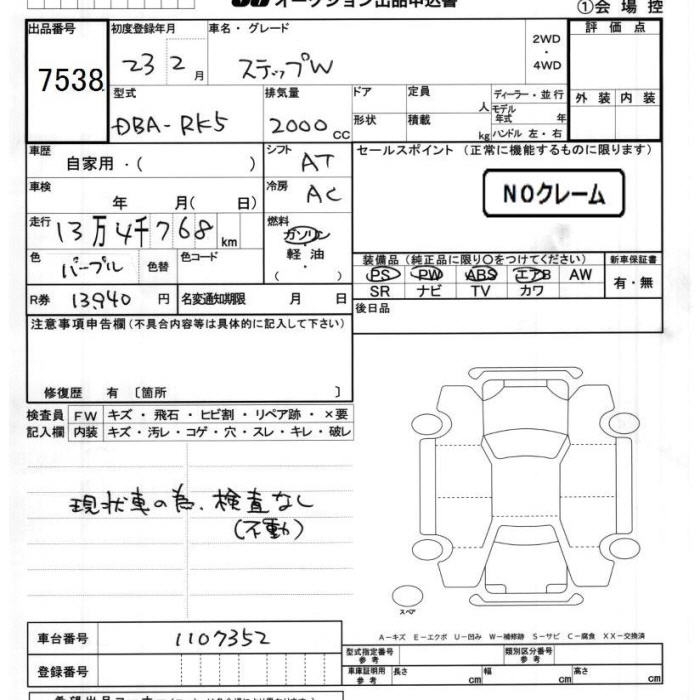 オークション出品申込書
①会場控
出品番号 初度登録年月 車名・グレード 評価点
7538 23 2月 ステップW 2WD・4WD
型式 排気量 ドア 定員 人 ディーラー・並行 外装 内装
DBA-RK5 2000CC 形状 積載 kg モデル年式 年 ハンドル 左・右
車歴 自家用・( ) シフト AT セールスポイント (正常に機能するものに限ります)
車検 年 月( 日) 冷房 AC NOクレーム
走行 13万4千768km 燃料 ガソリン 軽油・( )
色 パープル 色替 色コード 装備品(純正品に限り○をつけてください) 新車保証書
PS PW ABS エアB AW 有・無
SR ナビ TV カワ
R券 13940円 名変通知期限 月 日 後日品
注意事項申告欄(不具合内容等は具体的に記入して下さい)
修復歴 有 〔箇所 〕
検査員 FW キズ・飛石・ヒビ割・リペア跡・×要
記入欄 内装 キズ・汚レ・コゲ・穴・スレ・キレ・破レ
現状車の為、検査なし
(不動)
スペア
A−キズ E−エクボ U−凹み W−補修跡 S−サビ C−腐食 XX−交換済
車台番号 1107352 型式指定番号 参考 類別区分番号 参考
登録番号 車庫証明用 参考 長さ cm 幅 cm 高さ cm